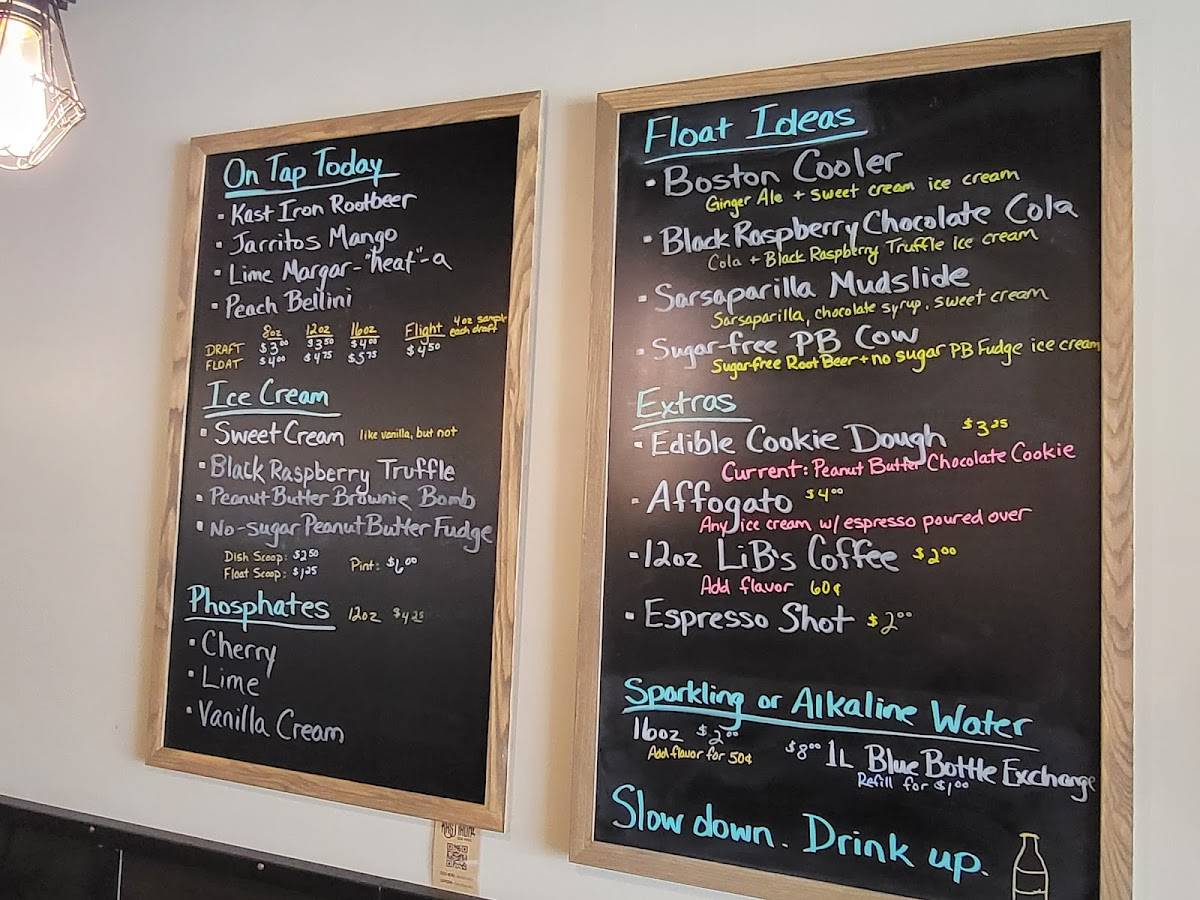 On Tap Today
▪ Kast Iron Rootbeer
▪ Jarritos Mango
▪ Lime Margar-"heat"-a
▪ Peach Bellini
8oz 12oz 16oz Flight 4oz sample each draft
DRAFT $3.00 $3.50 $4.00 $4.50
FLOAT $4.00 $4.75 $5.75
Ice Cream
▪ Sweet Cream like vanilla, but not
▪ Black Raspberry Truffle
▪ Peanut Butter Brownie Bomb
▪ No-sugar Peanut Butter Fudge
Dish Scoop: $2.50
Float Scoop: $1.25 Pint: $6.00
Phosphates 12oz $4.25
▪ Cherry
▪ Lime
▪ Vanilla Cream
Float Ideas
▪ Boston Cooler
Ginger Ale + Sweet cream ice cream
▪ Black Raspberry Chocolate Cola
Cola + Black Raspberry Truffle ice cream
▪ Sarsaparilla Mudslide
Sarsaparilla, chocolate syrup, sweet cream
▪ Sugar-free PB Cow
Sugar-free Root Beer + no sugar PB Fudge ice cream
Extras
▪ Edible Cookie Dough $3.25
Current: Peanut Butter Chocolate Cookie
▪ Affogato $4.00
Any ice cream w/ espresso poured over
▪ 12oz LiB's Coffee $2.00
Add flavor 60¢
▪ Espresso Shot $2.00
Sparkling or Alkaline Water
16oz $2.00 $8.00 1L Blue Bottle Exchange
Add flavor for 50¢ Refill for $1.00
Slow down. Drink up.